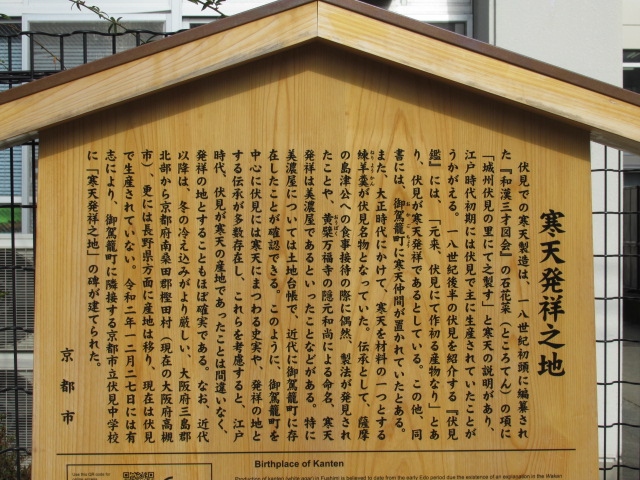 寒天発祥之地
伏見での寒天製造は、一八世紀初頭に編纂され
た『和漢三才図会』の石花菜(ところてん)の項に
「城州伏見の里にて之製す」と寒天の説明があり、
江戸時代初期には伏見で主に生産されていたことが
うかがえる。一八世紀後半の伏見を紹介する『伏見
鑑』には、「元来、伏見にて作初る産物なり」とあ
り、伏見が寒天発祥であるとしている。この他、同
書には、御駕籠町に寒天仲間が置かれていたとある。
また、大正時代にかけて、寒天を材料の一つとする
練羊羹が伏見名物となっていた。伝承として、薩摩
の島津公への食事接待の際に偶然、製法が発見され
たことや、黄檗万福寺の隠元和尚による命名、寒天
発祥は美濃屋であるといったことなどがある。特に
美濃屋については土地台帳で、近代に御駕籠町に存
在したことが確認できる。このように、御駕籠町を
中心に伏見には寒天にまつわる史実や、発祥の地と
する伝承が多数存在し、これらを考慮すると、江戸
時代、伏見が寒天の産地であったことは間違いなく、
発祥の地とすることもほぼ確実である。なお、近代
以降は、冬の冷え込みがより厳しい、大阪府三島郡
北部から京都府南桑田郡樫田村(現在の大阪府高槻
市)、更には長野県方面に産地は移り、現在は伏見
で生産されていない。令和二年一二月二七日には有
志により、御駕籠町に隣接する京都市立伏見中学校
に「寒天発祥之地」の碑が建てられた。
京都市
Birthplace of Kanten
Production of kanten (white agar) in Fushimi is believed to date from the early Edo period due the existence of an explanation in the Wakan